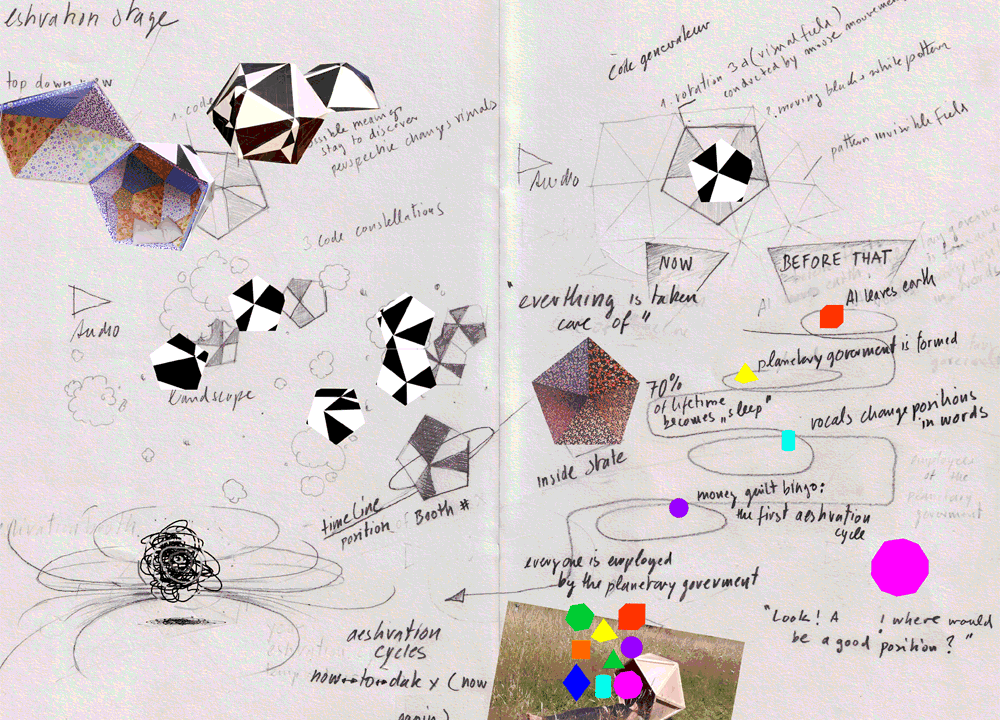 eshvation stage
top down view
1. code
possible mean of
stay to discover
perspective changes visuals
3 code constellations
Audio
Landscape
timeline
position of Booth #
aeshvation
cycles
now to date x (now
again)
code generateur
1. rotation 3d (visual fuels)
conducted by mouse movement
2. moving black & white pattern
pattern invisible fuels
Audio
NOW
BEFORE THAT
"everthing is taken
care of"
AI
AI leaves earth
planetary goverment is formed
70%
of lifetime
becomes „sleep"
vocals change positions
in words
inside state
money guilt bingo:
the first aeshvation
cycle
employees
of the
planetary
goverment
everyone is employed
by the planetary goverment
"Look! A ! where would
be a good position?"